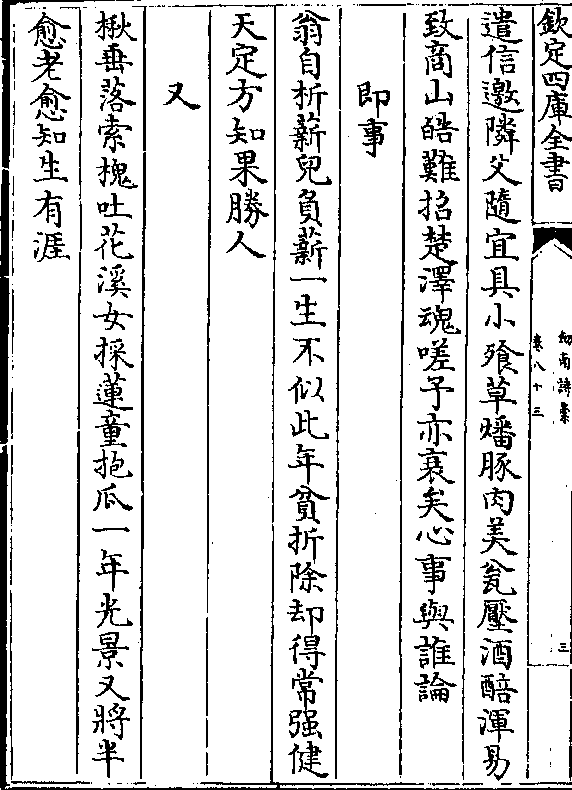 欽定四庫全書
劍南詩槀
卷八十三
三
遣信邀隣父隨宜具小飱草燔豚肉美瓮壓酒醅渾易
致商山皓難招楚澤魂嗟予亦衰矣心事與誰論
即事
翁自析薪兒負薪一生不似此年貧折除却得常强健
天定方知果勝人
又
楸垂落索槐吐花溪女採蓮童抱瓜一年光景又將半
愈老愈知生有涯